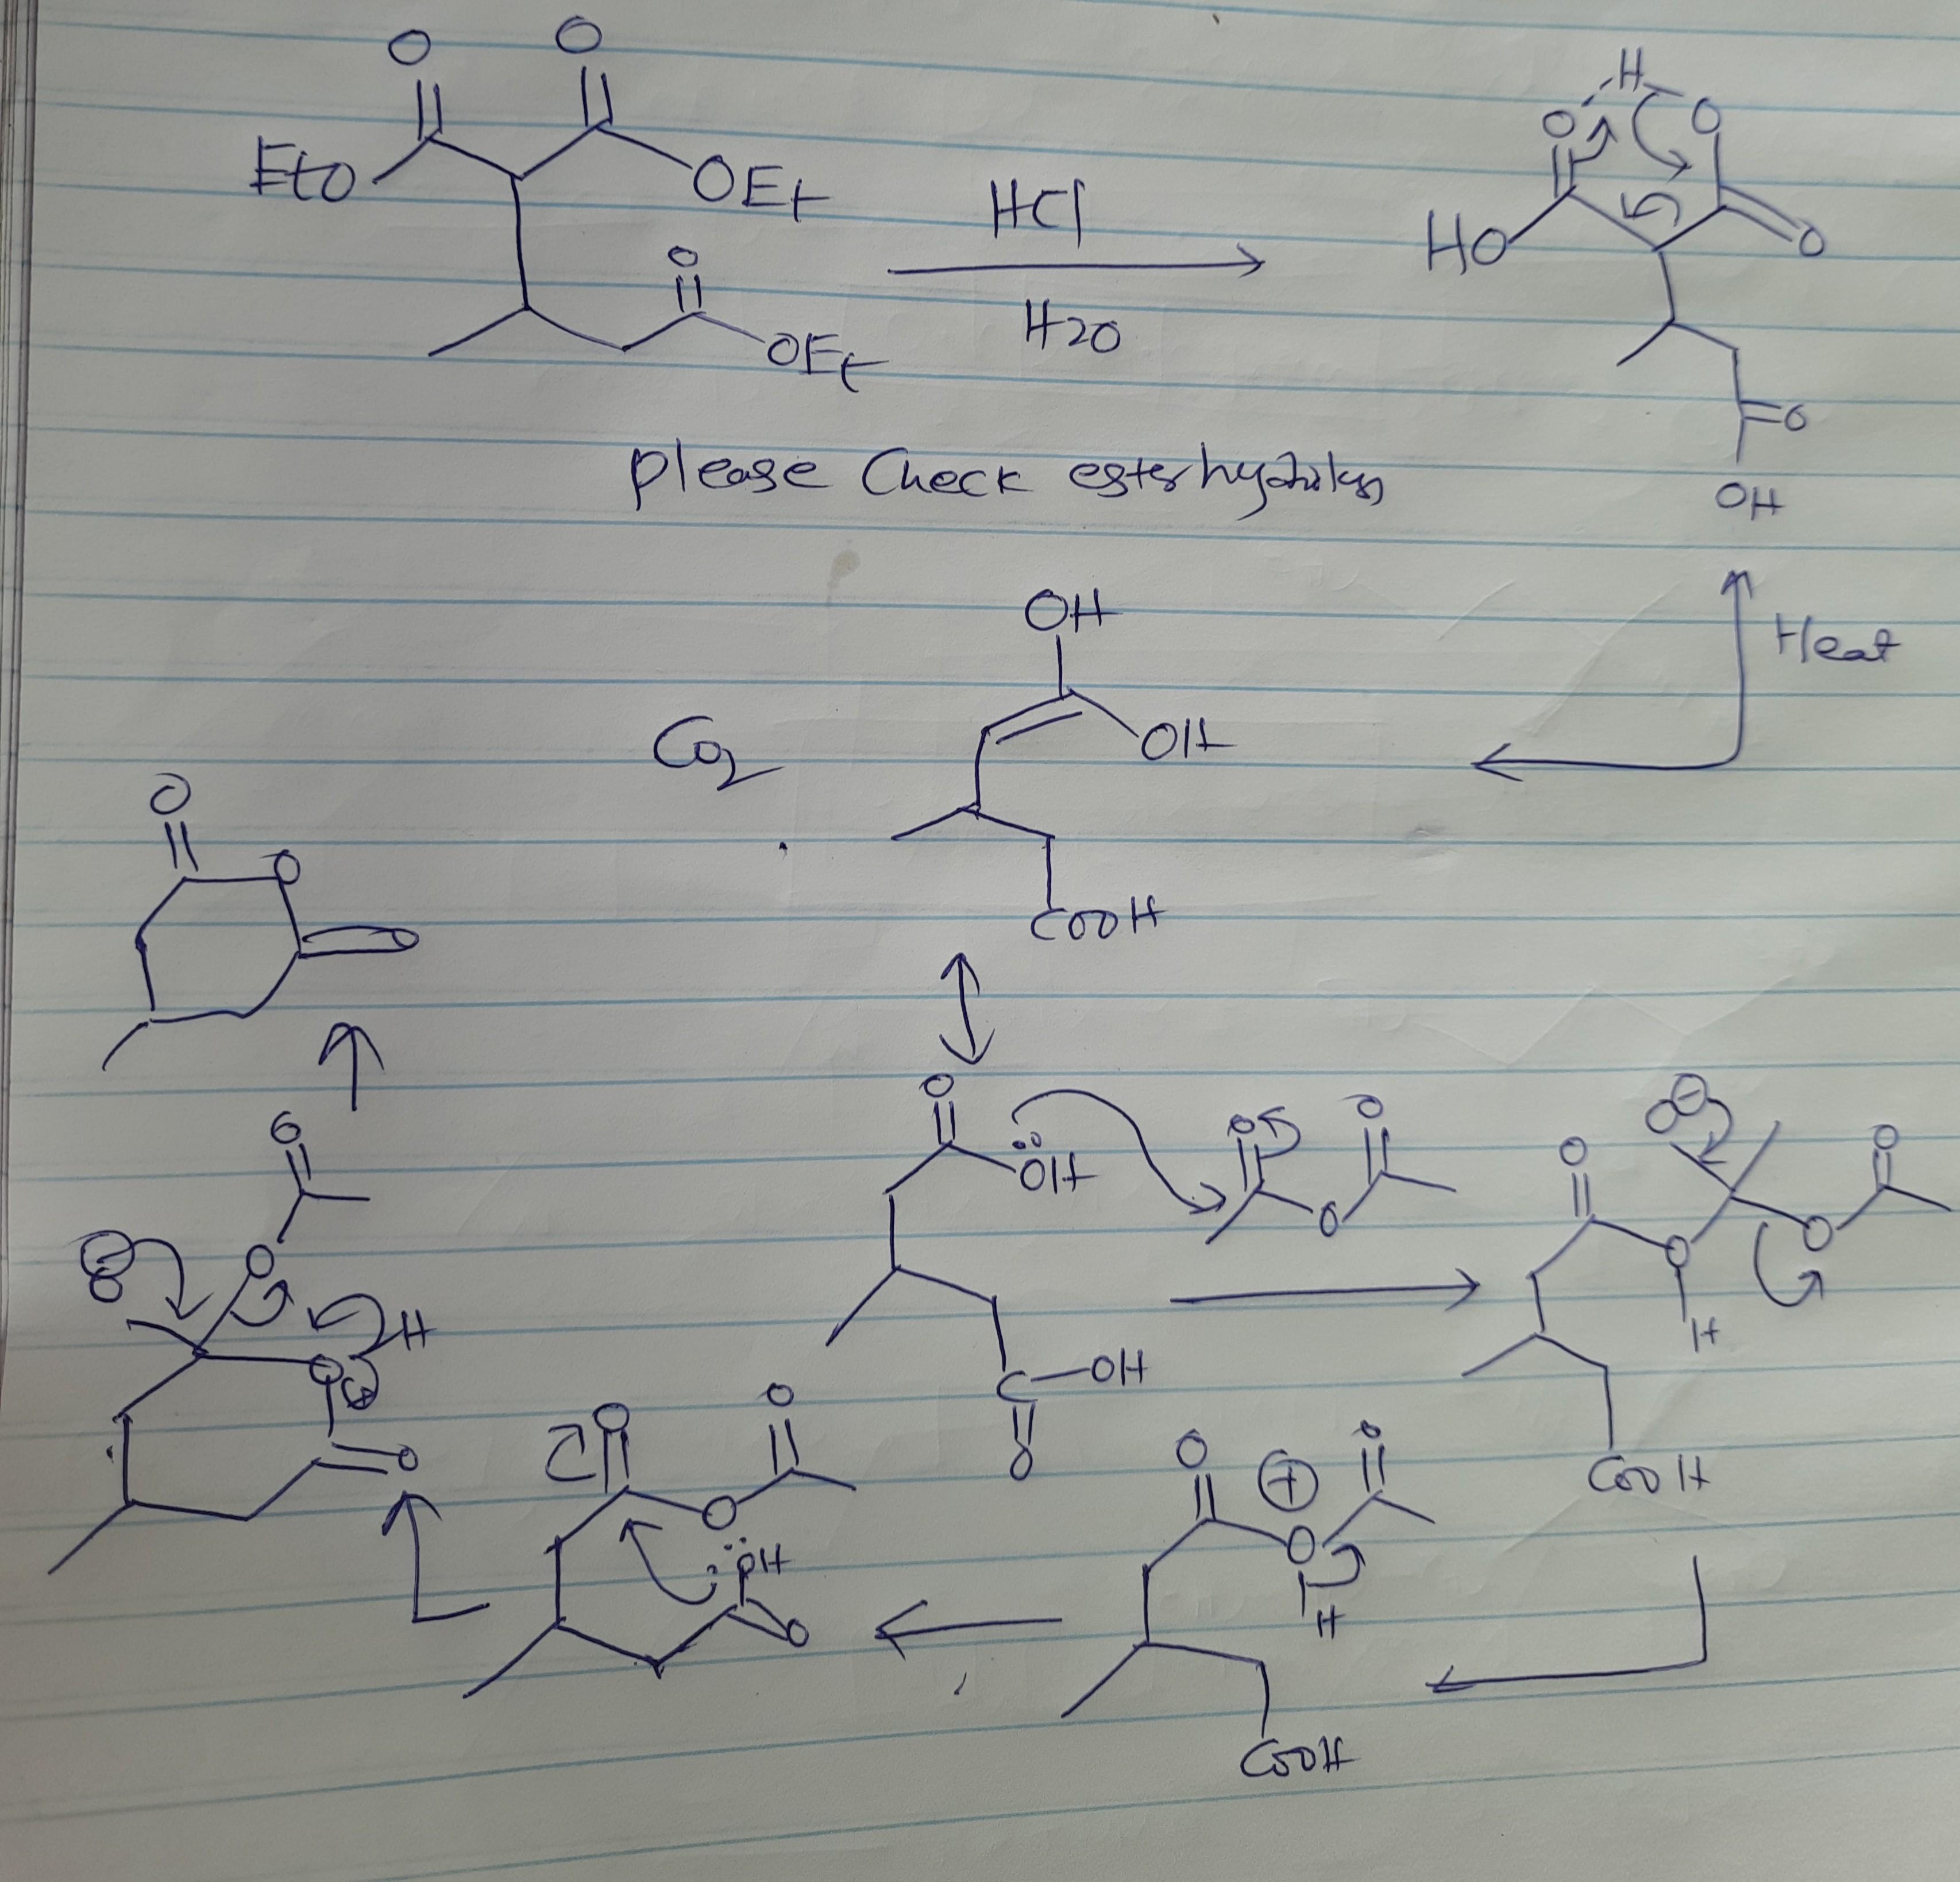 O O
EtO OEt
O
OEt
HCl
H2O
H
O O
HO O
O
OH
please Check ester
Heat
OH
OH
CO2
COOH
O
O
O
O
OH
C OH
O
O O
O
O O
O O
O
H
COOH
O O
O
H
COOH
O O
O
OH
O
O
O
O
H
O
O